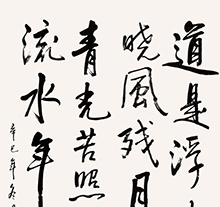 道是浮
晓风残月
青光苦照
流水年
辛巳年冬